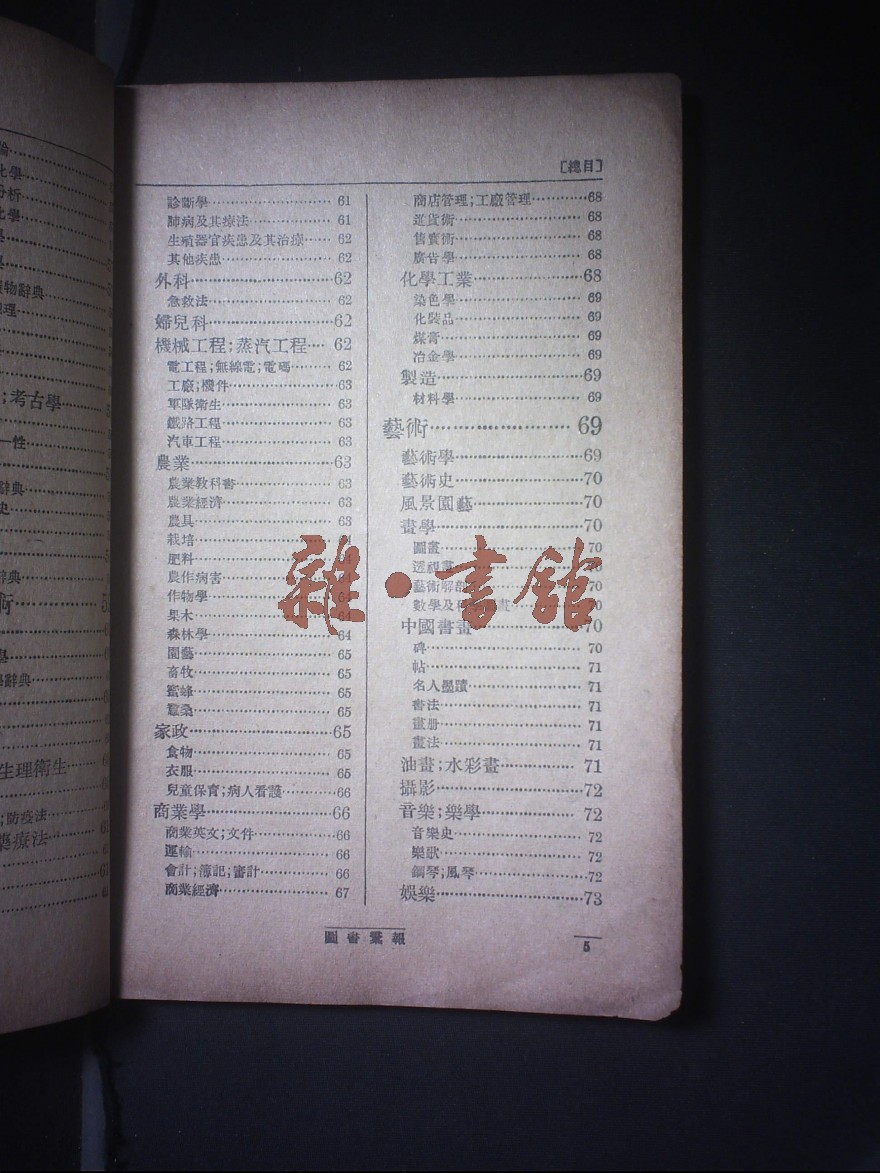 論
化學
分析
化學
學
學
物辭典
理
;考古學
一性
辭典
史
辭典
術
學
學辭典
生理衛生
;防疫法
藥療法
[總目]
診斷學 61
肺病及其療法 61
生殖器官疾患及其治療 62
其他疾患
外科 62
急救法 62
婦兒科 62
機械工程;蒸汽工程 62
電工程;無線電;電碼 62
工廠;機件 63
軍隊衛生 63
鐵路工程 63
汽車工程 63
農業 63
農業教科書 63
農業經濟 63
農具 63
栽培
肥料
農作病害
作物學
果木 64
森林學 64
園藝 65
畜牧 65
蜜蜂 65
蠶桑 65
家政 65
食物 65
衣服 65
兒童保育;病人看護 66
商業學 66
商業英文;文件 66
運輸 66
會計;簿記;審計 66
商業經濟 67
商店管理;工廠管理 68
進貨術 68
售賣術 68
廣告學 68
化學工業 68
染色學 69
化裝品 69
煤膏 69
冶金學 69
製造 69
材料學 69
藝術 69
藝術學 69
藝術史 70
風景園藝 70
畫學 70
圖畫 70
透視畫 70
藝術解剖 70
數學及 畫 70
中國書畫 70
碑 70
帖 71
名人墨蹟 71
書法 71
畫册 71
畫法 71
油畫;水彩畫 71
攝影 72
音樂;樂學 72
音樂史 72
樂歌 72
鋼琴;風琴 72
娛樂 73
圖書彙報
5
雜·書館